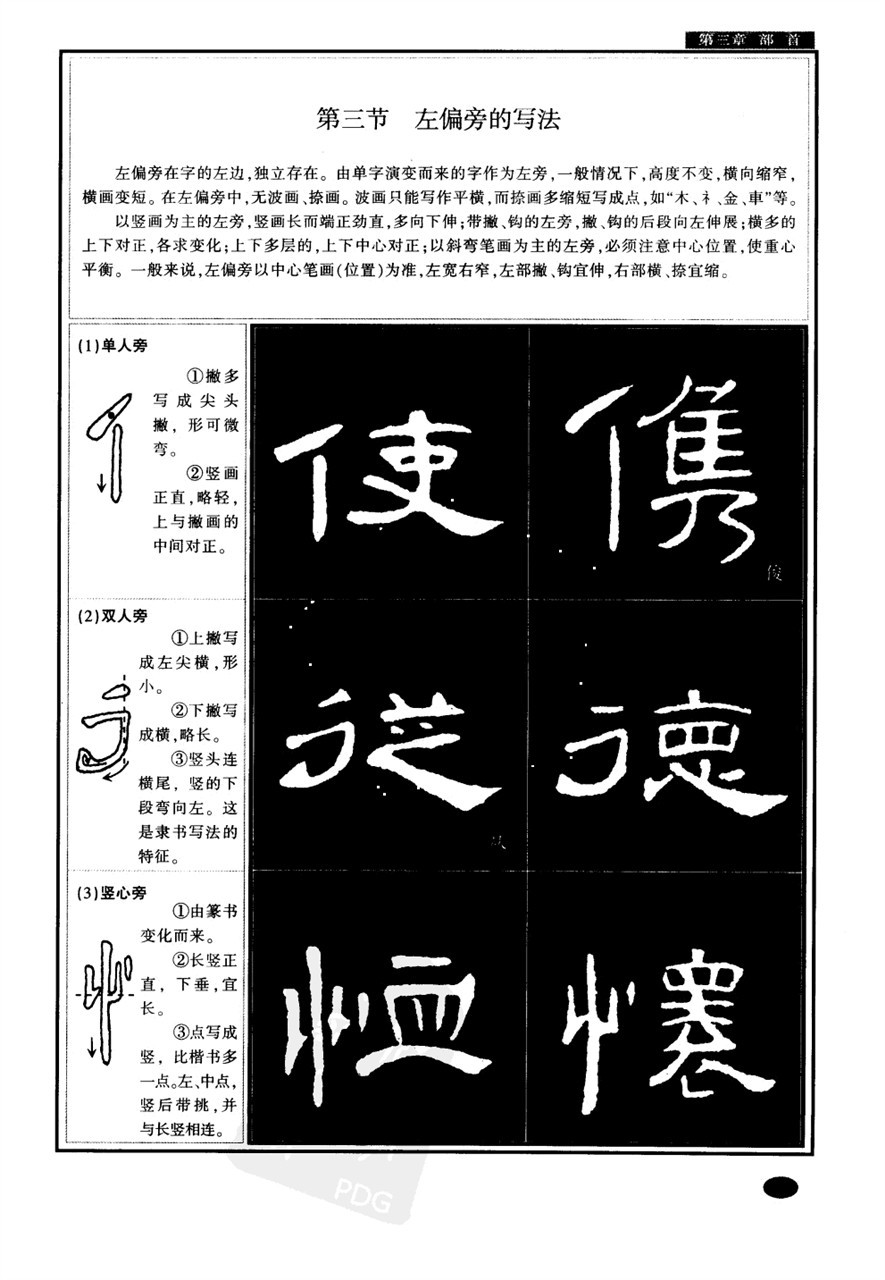 第三章 部 首
第三节 左偏旁的写法
左偏旁在字的左边,独立存在。由单字演变而来的字作为左旁,一般情况下,高度不变,横向缩窄,
横画变短。在左偏旁中,无波画、捺画。波画只能写作平横,而捺画多缩短写成点,如“木、礻、金、車”等。
以竖画为主的左旁,竖画长而端正劲直,多向下伸;带撇、钩的左旁,撇、钩的后段向左伸展;横多的
上下对正,各求变化;上下多层的,上下中心对正;以斜弯笔画为主的左旁,必须注意中心位置,使重心
平衡。一般来说,左偏旁以中心笔画(位置)为准,左宽右窄,左部撇、钩宜伸,右部横、捺宜缩。
(1)单人旁
①撇多
写成尖头
撇,形可微
弯。
②竖画
正直,略轻,
上与撇画的
中间对正。
使
儁
俊
(2)双人旁
①上撇写
成左尖横,形
小。
②下撇写
成横,略长。
③竖头连
横尾,竖的下
段弯向左。这
是隶书写法的
特征。
從
从
德
(3)竖心旁
①由篆书
变化而来。
②长竖正
直,下垂,宜
长。
③点写成
竖,比楷书多
一点。左、中点,
竖后带挑,并
与长竖相连。
恤
懷
PDG